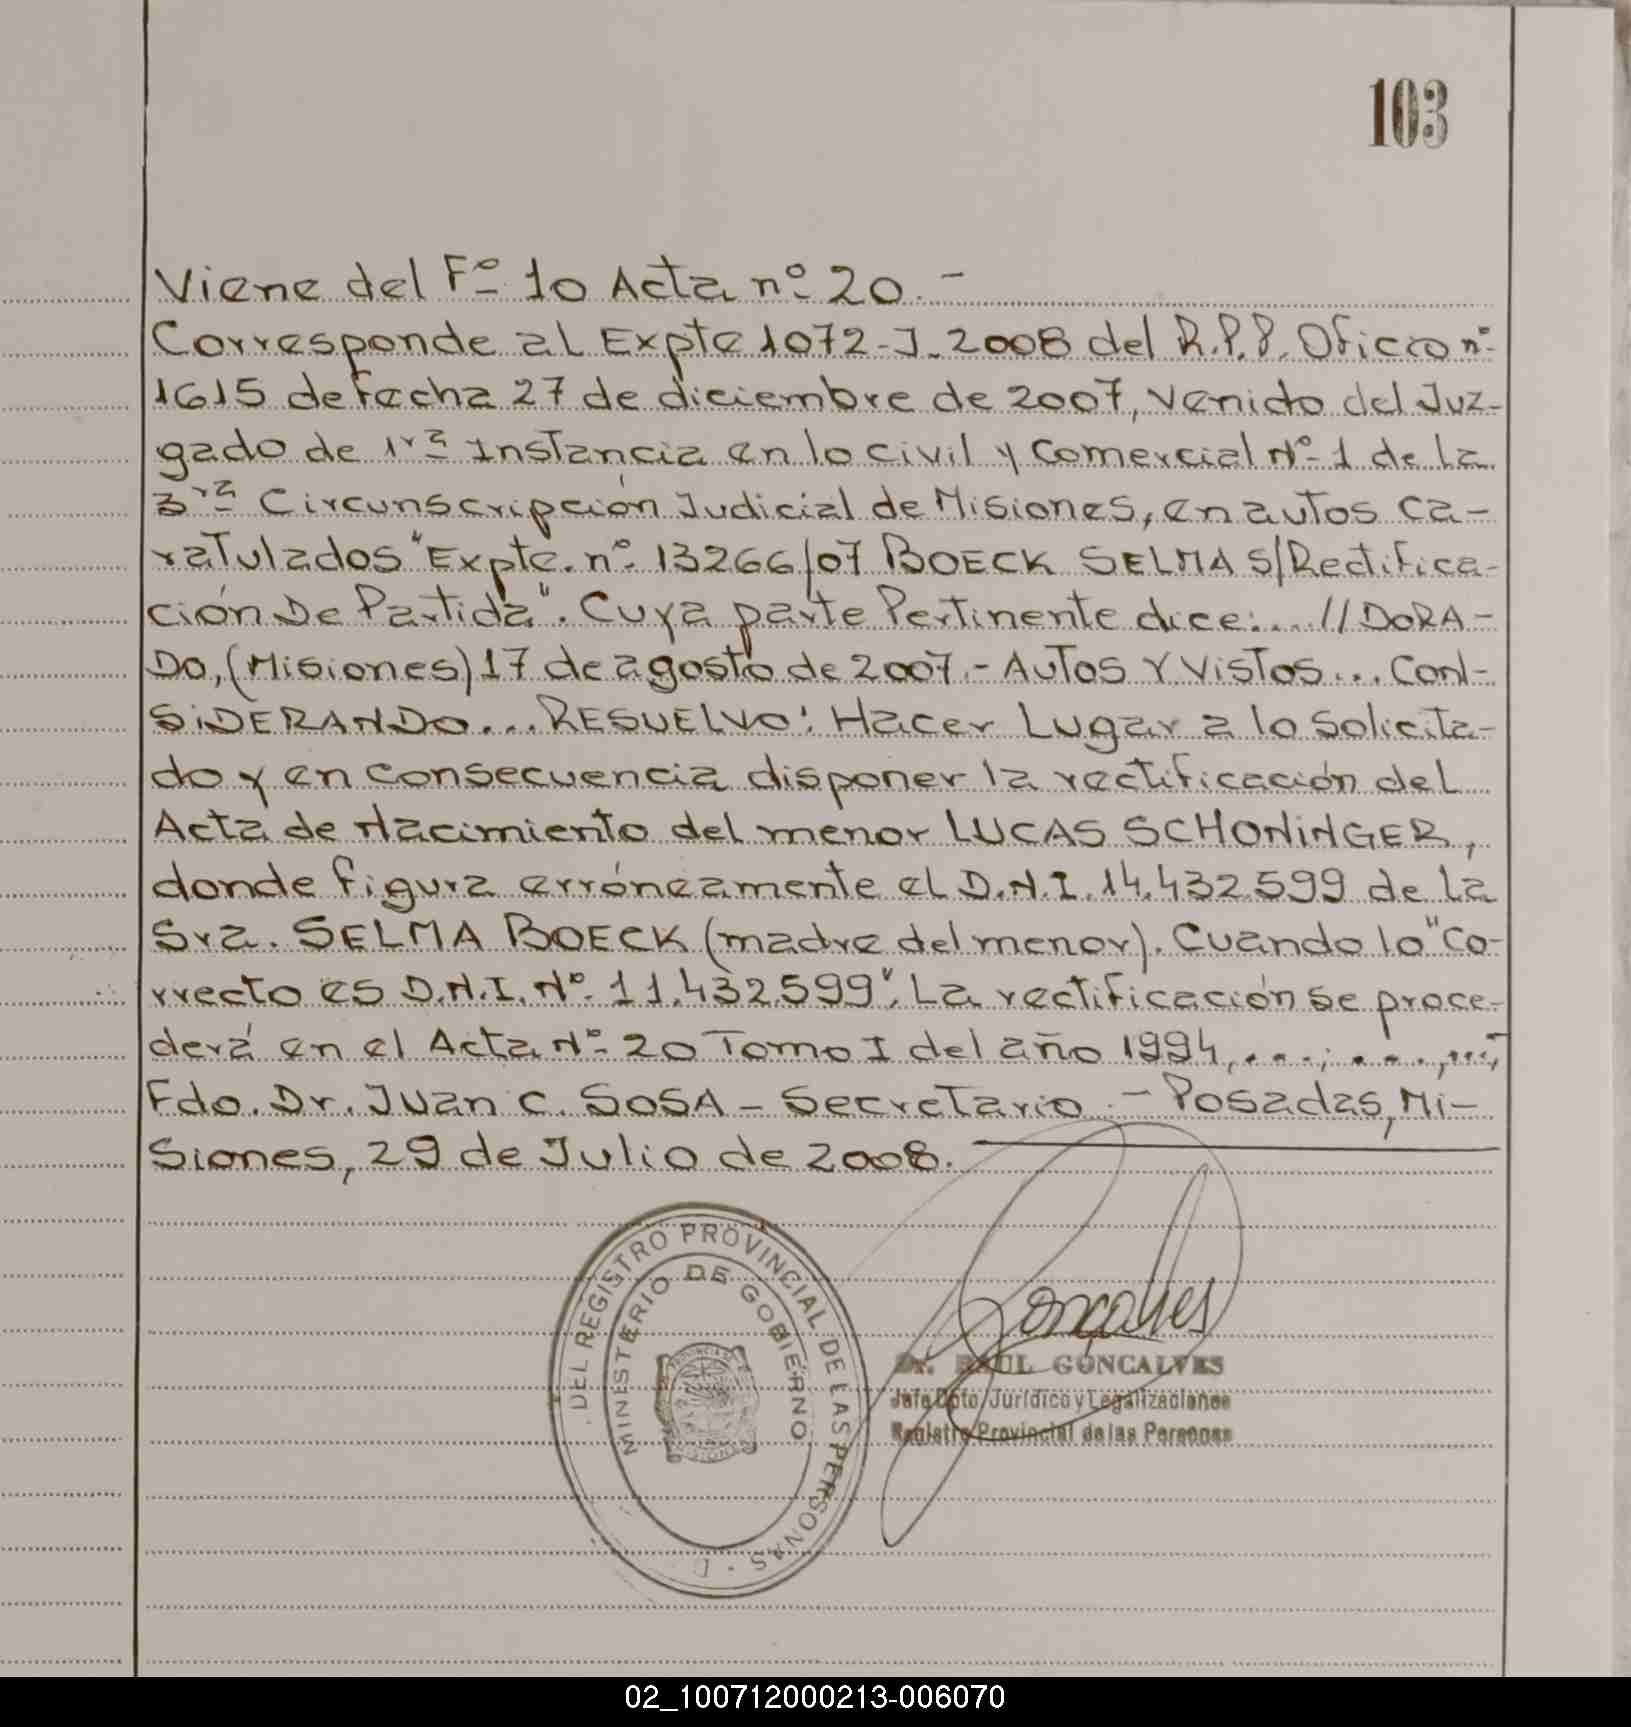 103
Viene del Fº 10 Acta nº 20.-
Corresponde al Expte 1072-J-2008 del R.P.P. Oficio nº
1615 de fecha 27 de diciembre de 2007, venido del Juz-
gado de 1ra Instancia en lo civil y Comercial Nº 1 de la
3ra Circunscripción Judicial de Misiones, en autos ca-
ratulados "Expte. nº 13266/07 BOECK SELMA S/Rectifica-
ción De Partida". Cuya parte Pertinente dice:... //DORA-
DO, (Misiones) 17 de agosto de 2007.- AUTOS Y VISTOS... CON-
SIDERANDO... RESUELVO: Hacer Lugar a lo solicita-
do y en consecuencia disponer la rectificación del
Acta de Nacimiento del menor LUCAS SCHONINGER,
donde figura erróneamente el D.N.I. 14.432.599 de la
Sra. SELMA BOECK (madre del menor). Cuando lo "Co-
rrecto es D.N.I. Nº 11.432.599". La rectificación se proce-
derá en el Acta Nº 20 Tomo I del año 1994, ...; ...., ...,
Fdo. Dr. Juan C. SOSA - Secretario.- Posadas, Mi-
siones, 29 de Julio de 2008.
DEL REGISTRO PROVINCIAL DE LAS PERSONAS
MINISTERIO DE GOBIERNO
Goncalves
Dr. RAUL GONCALVES
Jefe Dpto. Jurídico y Legalizaciones
Registro Provincial de las Personas
02_100712000213-006070